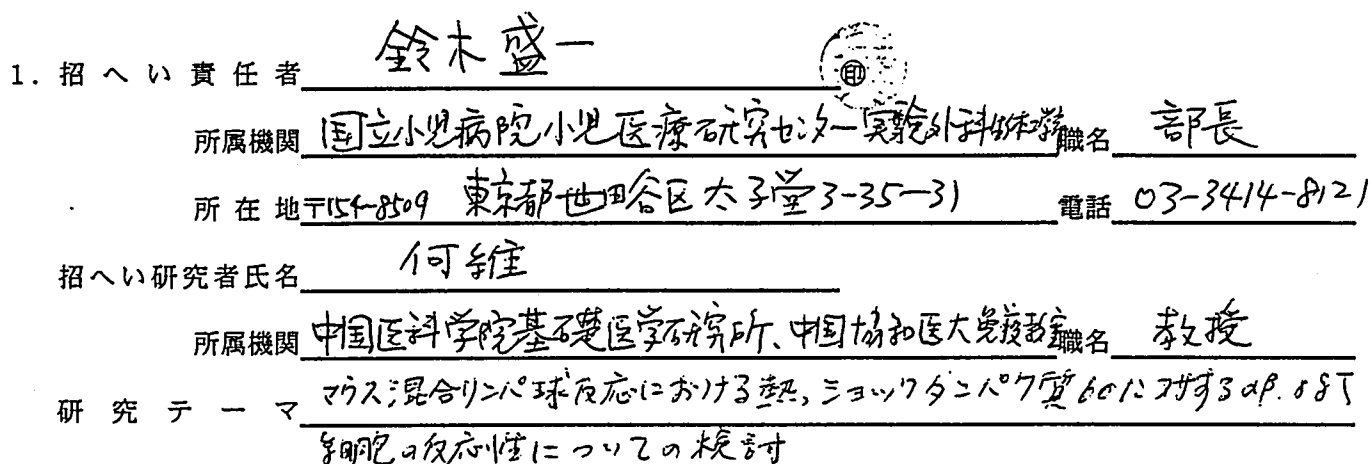 鈴木盛一
1. 招へい責任者 印
所属機関 国立小児病院小児医療研究センター実験外科生体工学 職名 部長
所在地 〒154-8509 東京都世田谷区太子堂3-35-31 電話 03-3414-8121
招へい研究者氏名 何維
所属機関 中国医科学院基礎医学研究所、中国協和医大免疫教室 職名 教授
研究テーマ マウス混合リンパ球反応における熱ショックタンパク質60に対するαβ.γδT
細胞の反応性についての検討